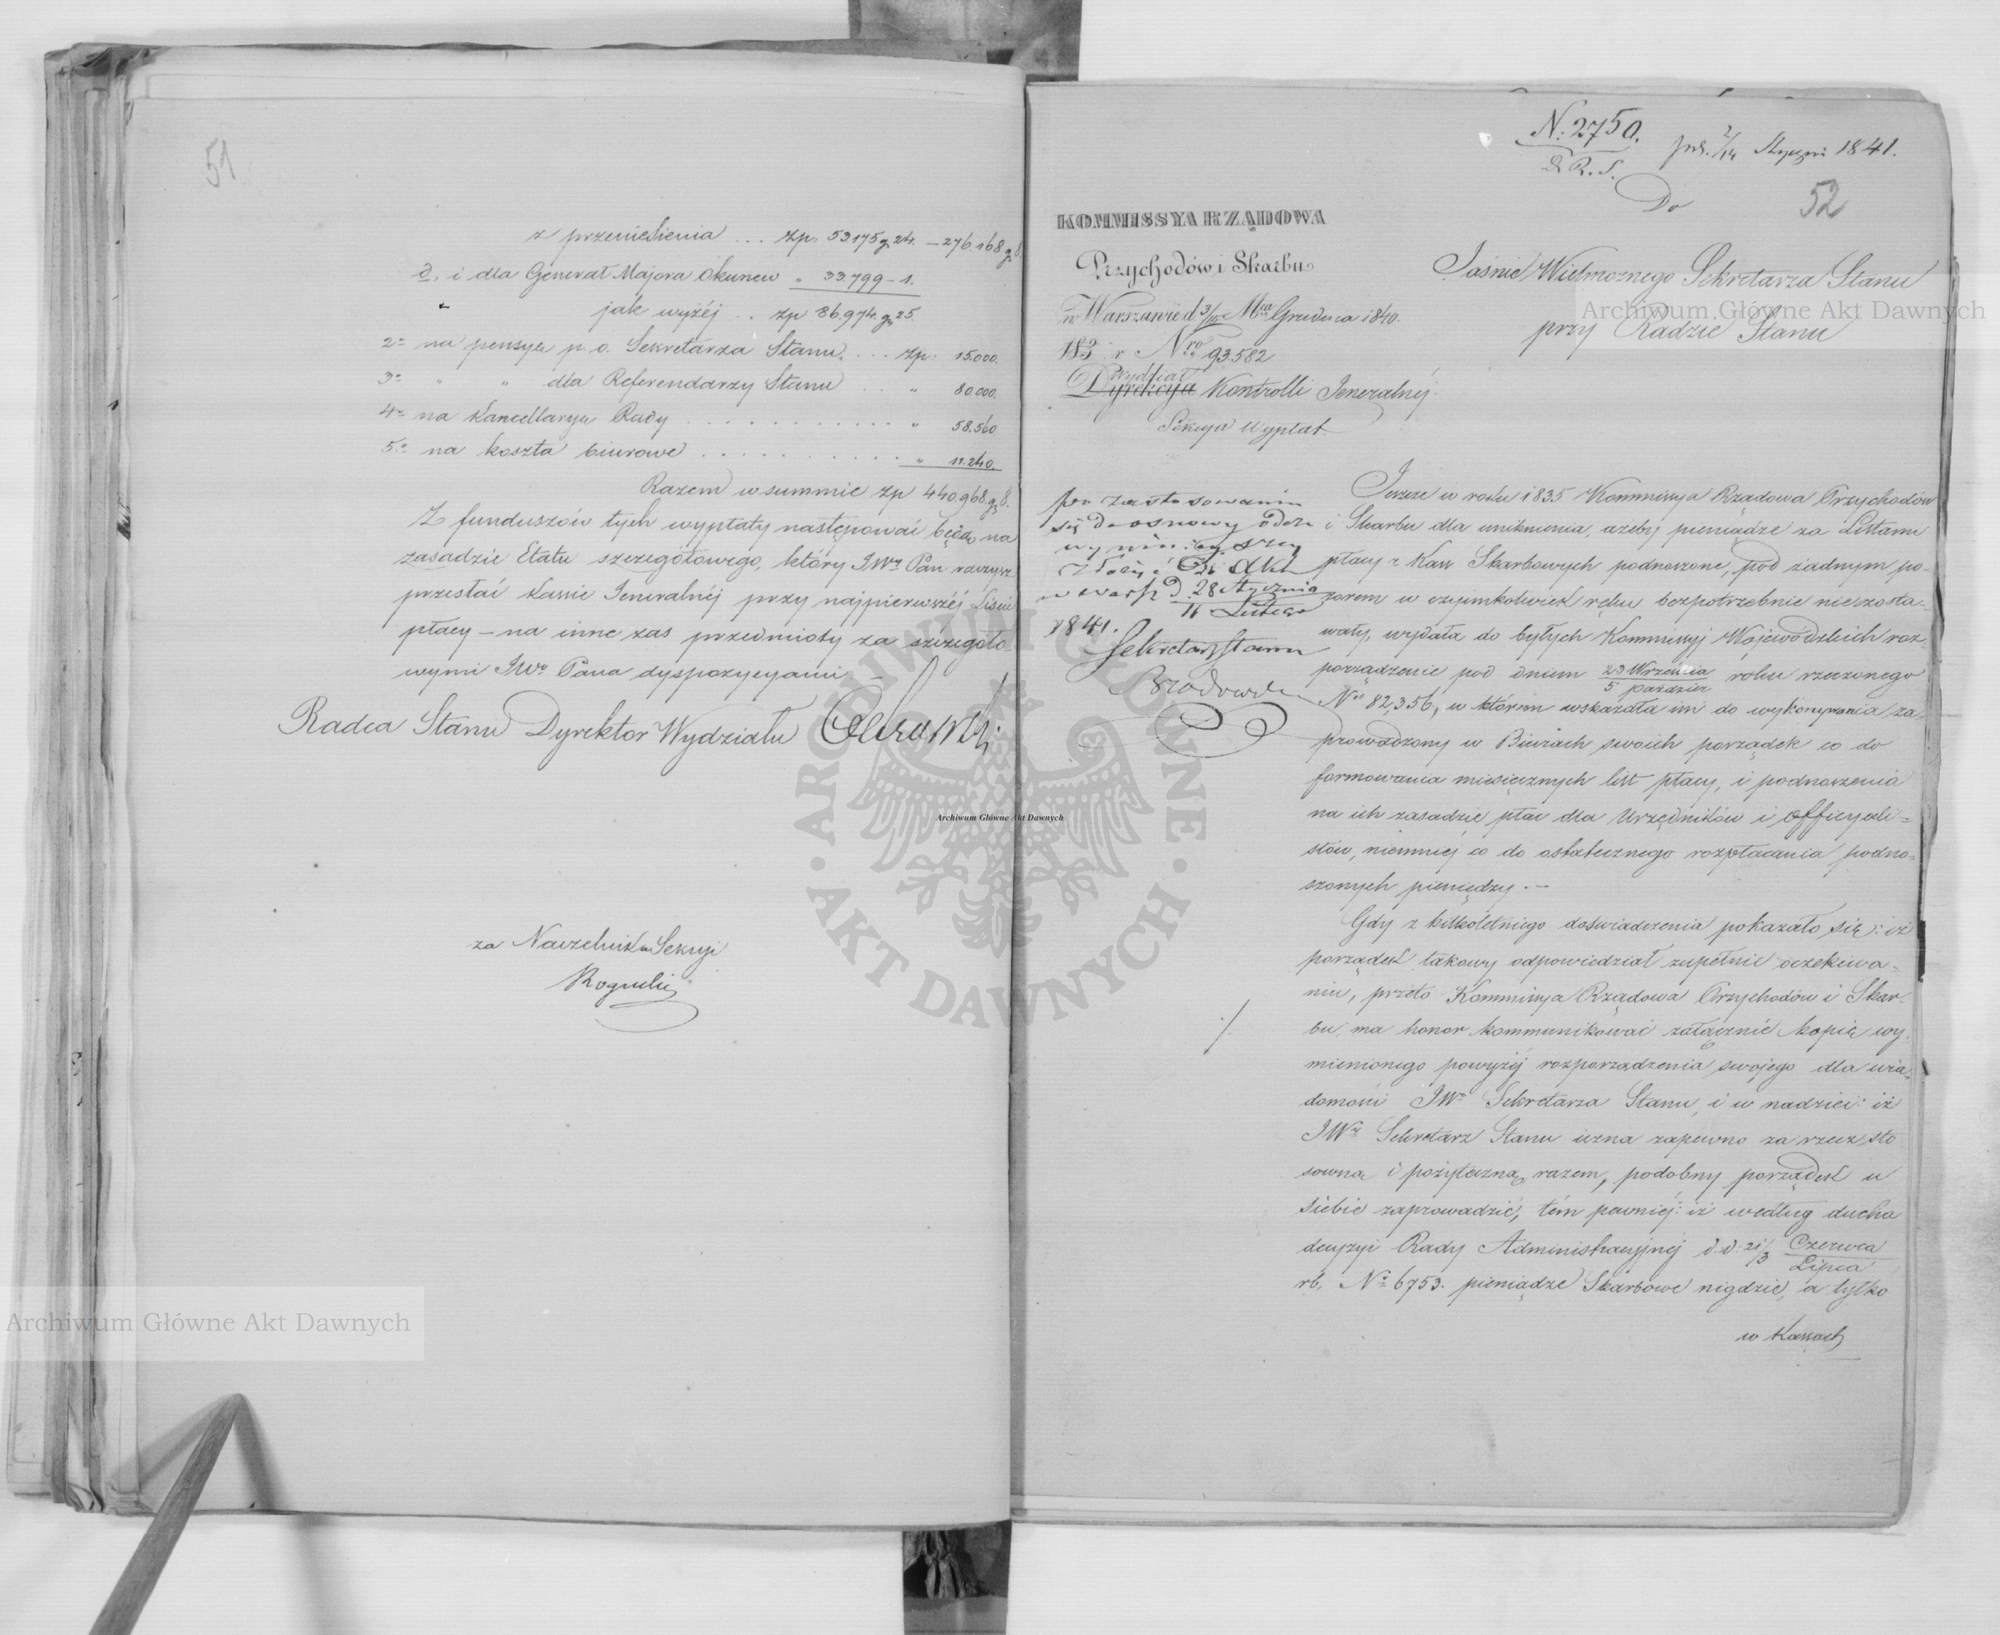 51
z przeniesienia ... zp. 53175 g. 24. — 276.168 g. 8
d, i dla Generał Majora Okunew „ 33.799 — 1.
jak wyżéj .. zp 86.974. g. 25.
2º na pensyą p. o. Sekretarza Stanu ... zp. 15.000.
3º „ „ dla Referendarzy Stanu .. „ 80.000.
4º na Kancellaryą Rady .......... „ 58.560
5º na koszta biurowe .......... „ 11.240.
Razem w summie zp 440.968 g. 8.
Z funduszów tych wypłaty następować będą na
zasadzie Etatu szczegółowego, który JWy Pan raczysz
przesłać Kassie Jeneralnéj przy najpierwszéj Liście
płacy — na inne zaś przedmioty za szczegóło-
wymi JWo Pana dyspozycyami. —
Radca Stanu Dyrektor Wydziału
za Naczelnika Sekcyi
N. 2750.
R. S.
2/14 Stycznia 1841.
Do
52
KOMMISSYA RZĄDOWA
Przychodów i Skarbu
w Warszawie d. 3/15 Mca Grudnia 1840.
Nro 93.582
Wydział
Dyrekcya Kontrolli Jeneralnéj
Sekcya Wypłat
Jaśnie Wielmożnego Sekretarza Stanu
przy Radzie Stanu
po zastosowaniu
się do osnowy odezwy
złożyć do Akt
w Warsz. D. 28 Stycznia
Lutego
1841.
Sekretarz Stanu
Jeszcze w roku 1835 Kommissya Rządowa Przychodów
i Skarbu dla uniknienia, ażeby pieniądze za Listami
płacy z Kass Skarbowych podnoszone, pod żadnym po-
zorem w czyimkolwiek ręku bezpotrzebnie nie zosta-
wały, wydała do byłych Kommissyj Wojewódzkich roz-
porządzenie pod dniem 23 Września / 5 Paździer roku rzeczonego
No 82,356, w którém wskazała im do wykonywania za-
prowadzony w Biurach swoich porządek co do
formowania miesięcznych list płacy, i podnoszenia
na ich zasadzie płac dla Urzędników i Officyali-
stów, niemniéj co do ostatecznego rozpłacania podno-
szonych pieniędzy. —
Gdy z kilkoletniego doświadczenia pokazało się: iż
porządek takowy odpowiedział zupełnie oczekiwa-
niu, przeto Kommissya Rządowa Przychodów i Skar-
bu, ma honor kommunikować załącznie kopię wy-
./.
mienionego powyżéj rozporządzenia swojego dla wia-
domości JWo Sekretarza Stanu, i w nadziei: iż
JWy Sekretarz Stanu uzna zapewne za rzecz sto-
sowną i pożyteczną razem, podobny porządek u
siebie zaprowadzić, tém pewniéj: iż według ducha
decyzyi Rady Administracyjnéj d. d. 21/3 Czerwca / Lipca
rb. No 6753. pieniądze Skarbowe nigdzie, a tylko
w Kassach
Archiwum Główne Akt Dawnych
Archiwum Główne Akt Dawnych
Archiwum Główne Akt Dawnych
ARCHIWUM GŁÓWNE · AKT DAWNYCH ·